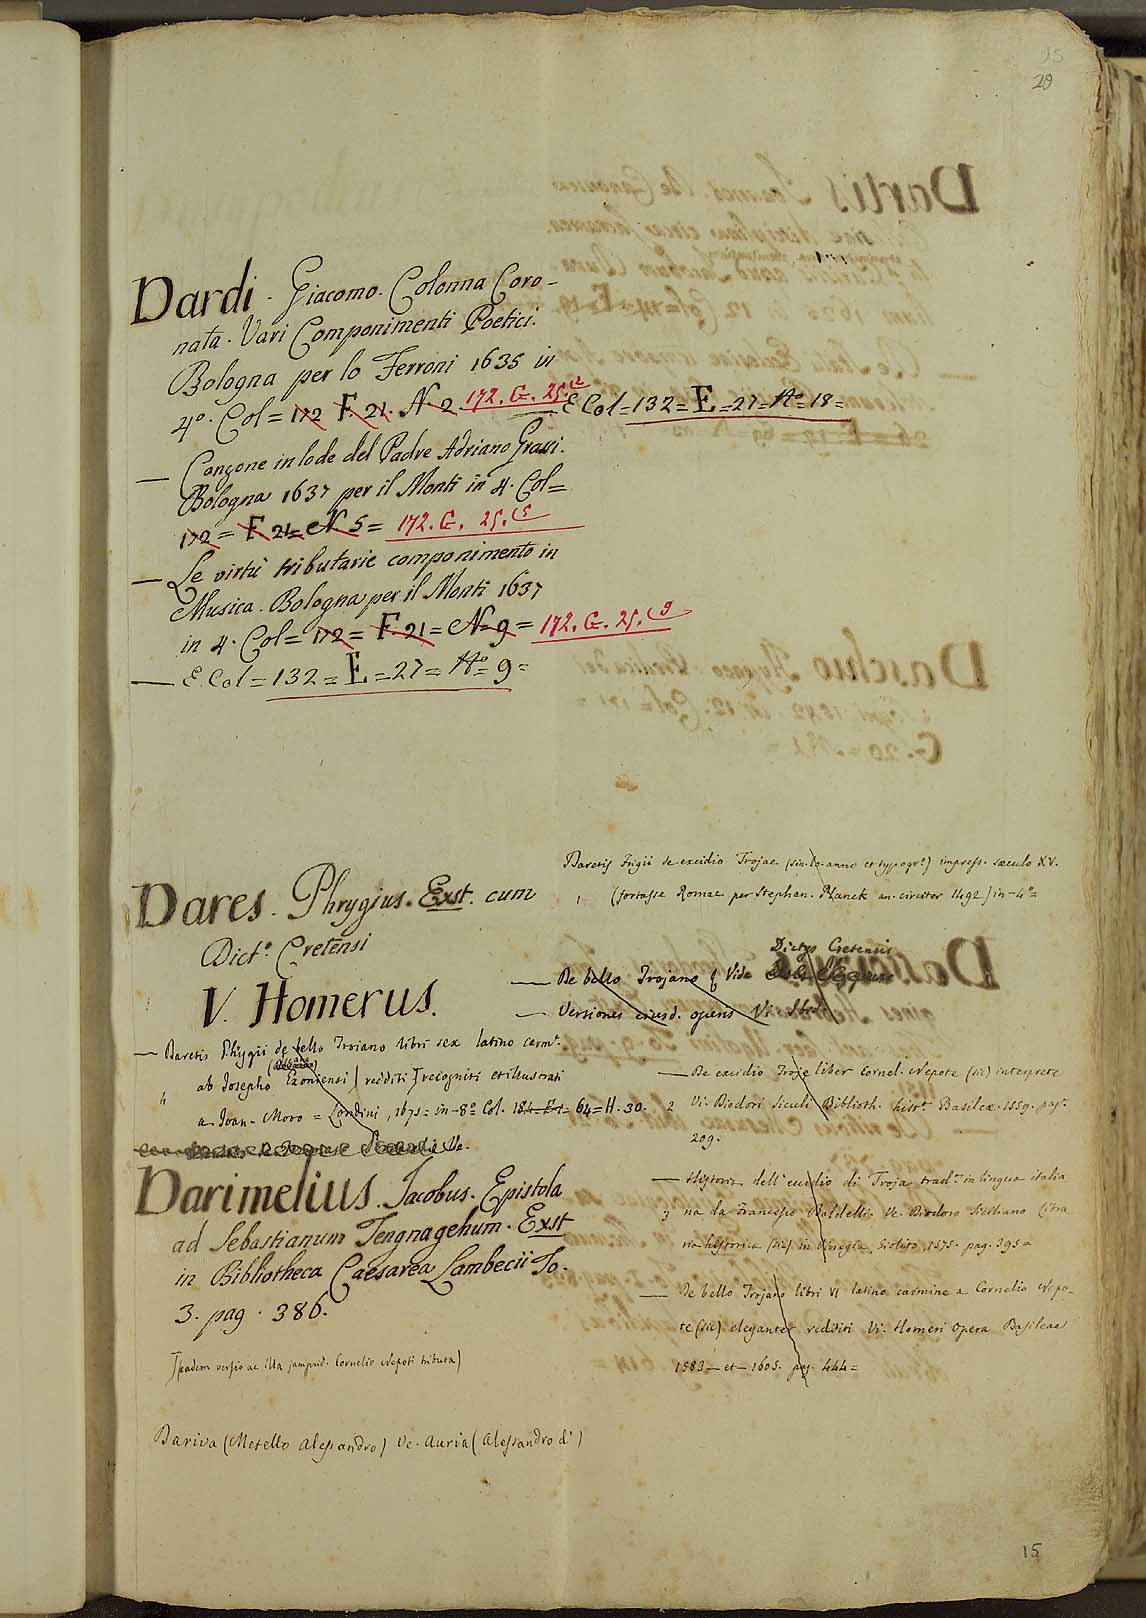 15
20
Dardi. Giacomo. Colonna Coro-
nata. Vari Componimenti Poetici.
Bologna per lo Ferroni 1635 in
4º. Col= 172 F. 21. N 2 172. G. 25.
E Col=132=E=27=Nº=18=
— Canzone in lode del Padre Adriano Grassi.
Bologna 1637 per il Monti in 4. Col=
172= F 21= N 5= 172. G. 25. 5
— Le virtù tributarie componimento in
Musica. Bologna per il Monti 1637
in 4. Col= 172= F. 21= N=9= 172. G. 25. 9
— E. Col=132=E=27=Nº=9=
Dares. Phrygius. Exst. cum
Dictº. Cretensi
V. Homerus.
— Daretis Phrygii de bello Troiano libri sex latino carmᵉ.
ab Josepho Exoniensi redditi recogniti et illustrati
4 a Joan. Moro = Londini, 1675= in-8º Col. 64=H. 30.
Darimelius. Jacobus. Epistola
ad Sebastianum Tengnagehum. Exst
in Bibliotheca Caesarea Lambecii To.
3. pag. 386.
(eadem versio ac illa jamprid. Cornelio Nepoti tributa)
Dariva (Metello Alessandro) Ve. Auria (Alessandro d')
Daretis Frigii de excidio Trojae (sin. lo. anno et typogrº.) impress. saeculo XV.
1 (fortasse Romae per Stephan. Planck an. circiter 1492) in-4º=
Dictys Cretensis
— De bello Trojano Vide
— Versiones ejusd. operis Vi.
— De excidio Troje liber Cornel. Nepote (sic) interprete
2 Vi. Diodori Siculi Biblioth. histᵉ. Basileae. 1559. pagᵃ.
209.
— Historia dell'eccidio di Troja tradᵗᵃ in lingua italia
3 na da Francesco Baldelli. Ve. Diodoro Siciliano Libra
ria historica (sic) in Vinegia, Giolito, 1575. pag. 395=
— De bello Trojano libri VI latino carmine a Cornelio Nepo-
te (sic) eleganter redditi Vi. Homeri Opera Basileae
1583— et— 1605. pag. 444=
15